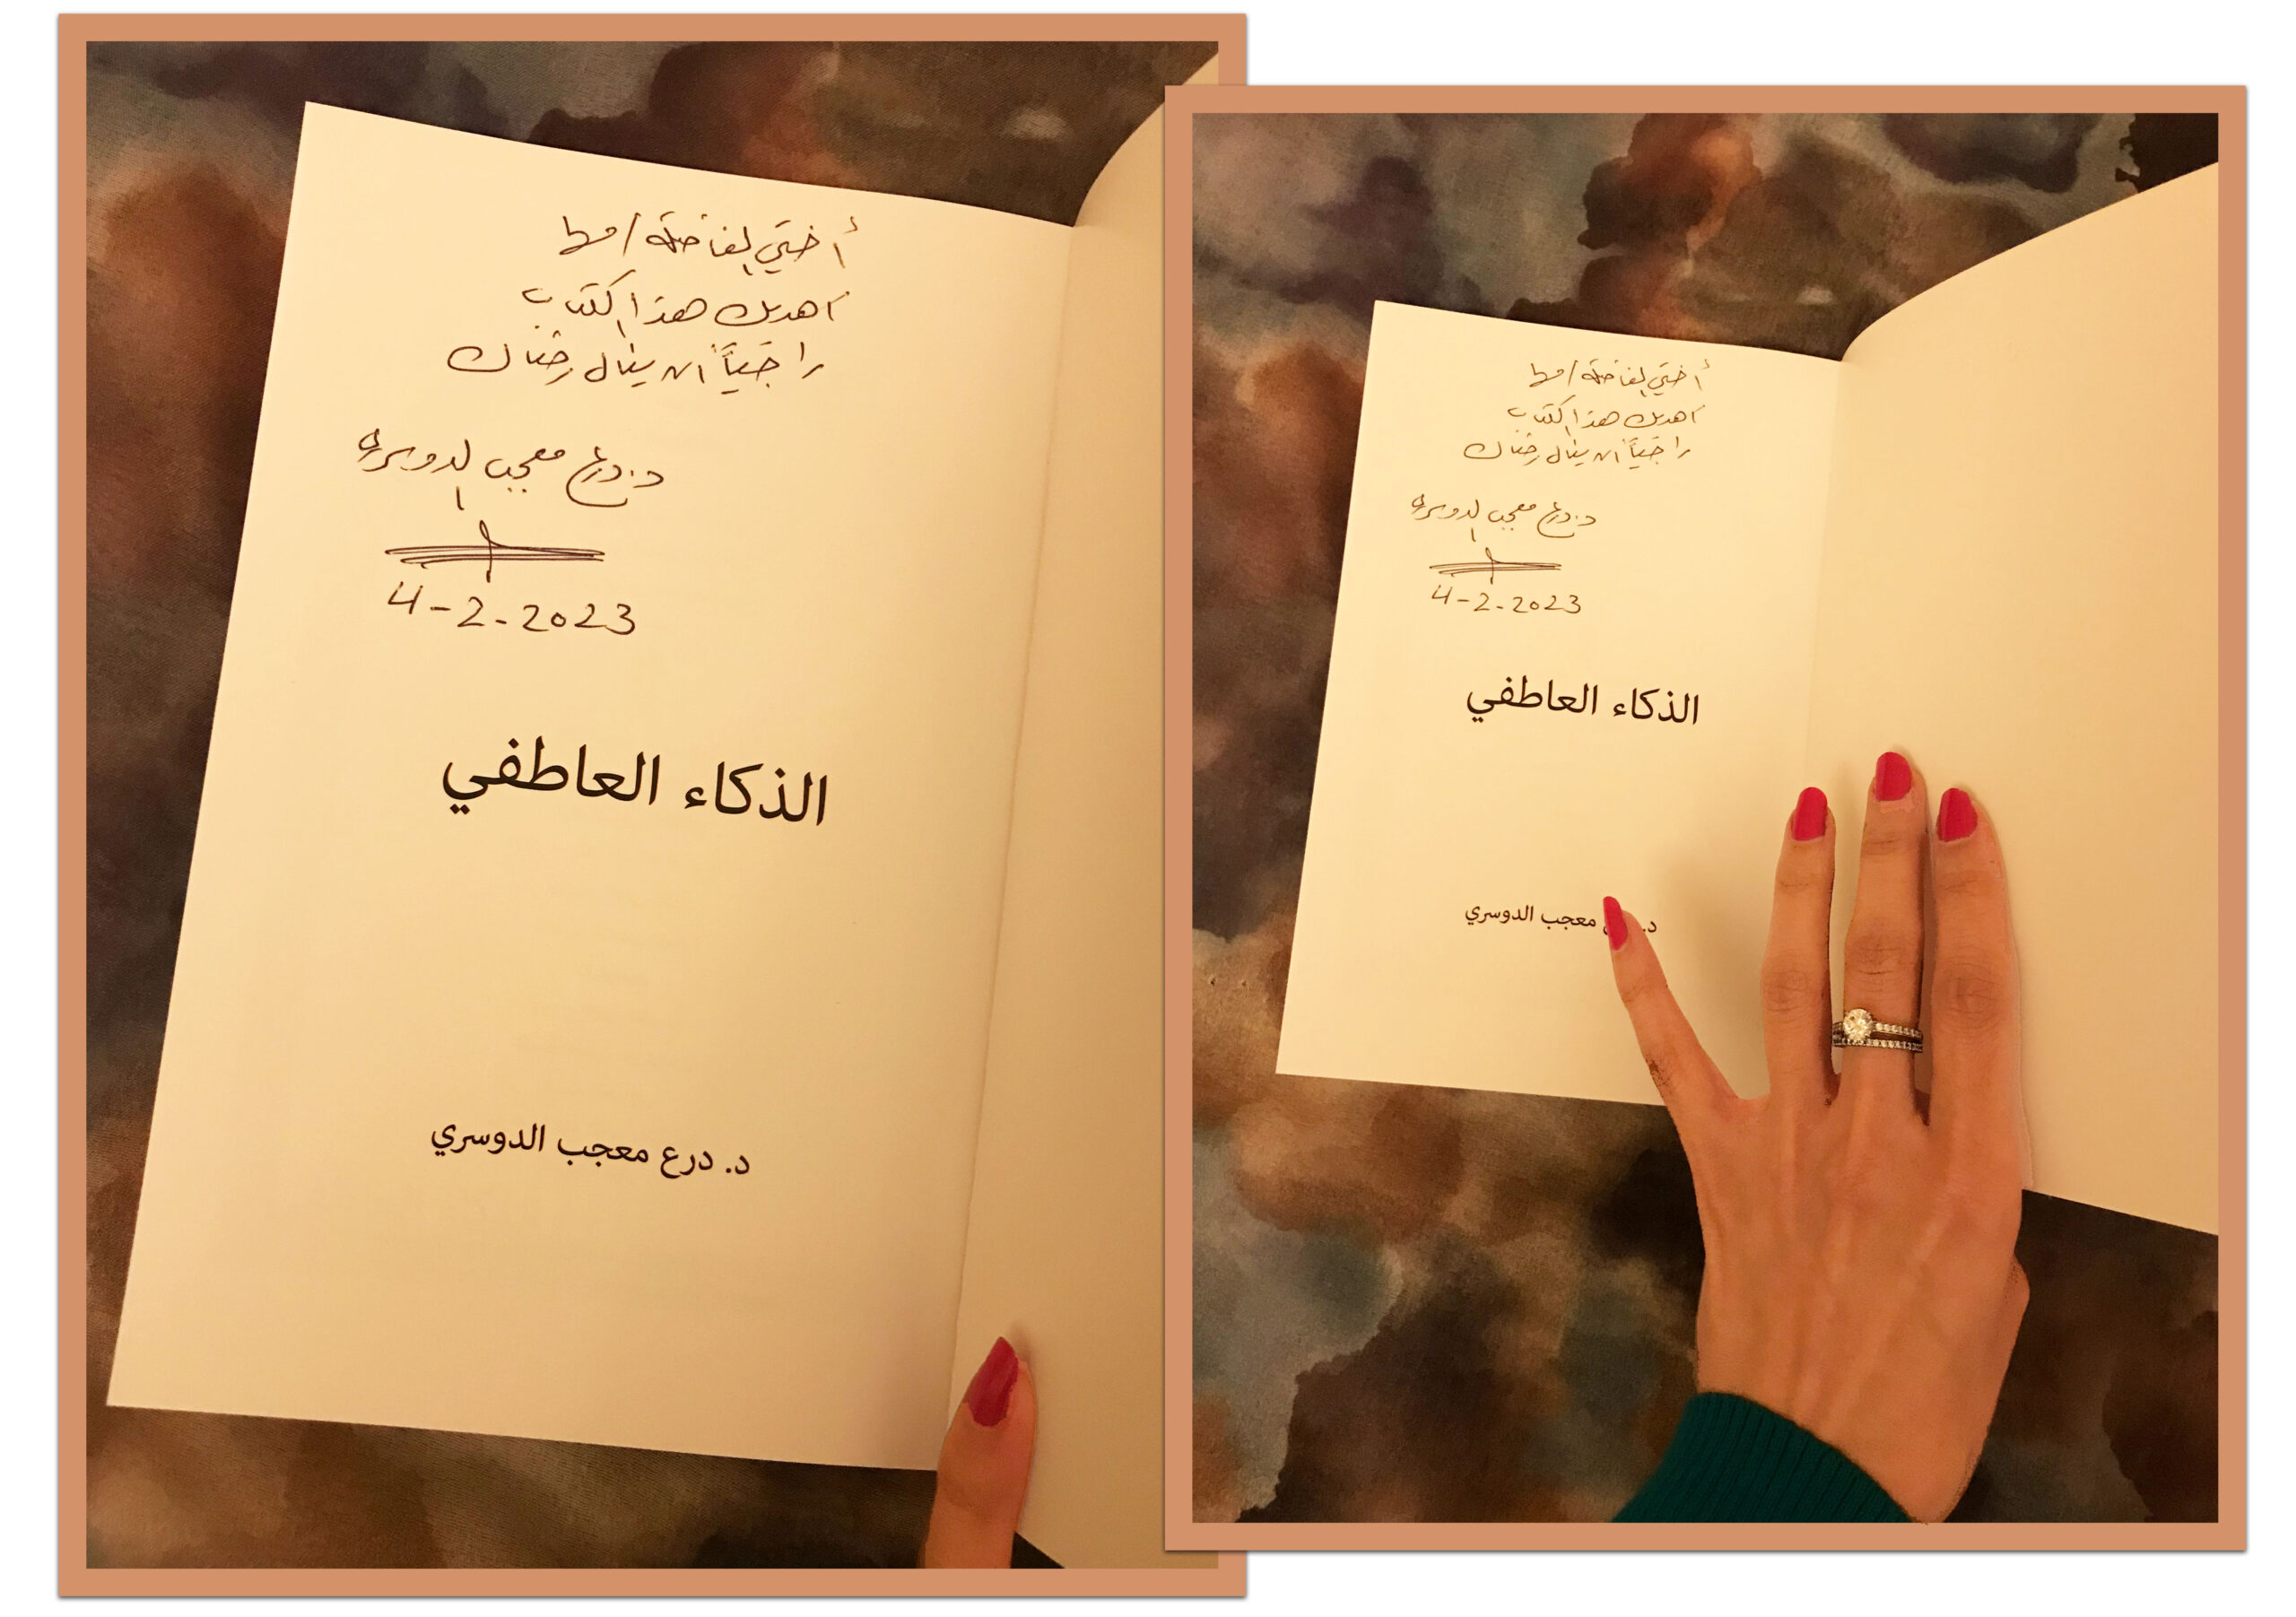 أختي الفاضلة /
اهديك هذا الكتاب
راجياً أن ينال رضاك
د. درع معجب الدوسري
4-2-2023
الذكاء العاطفي
د. درع معجب الدوسري
أختي الفاضلة /
اهديك هذا الكتاب
راجياً أن ينال رضاك
د. درع معجب الدوسري
4-2-2023
الذكاء العاطفي
د. معجب الدوسري